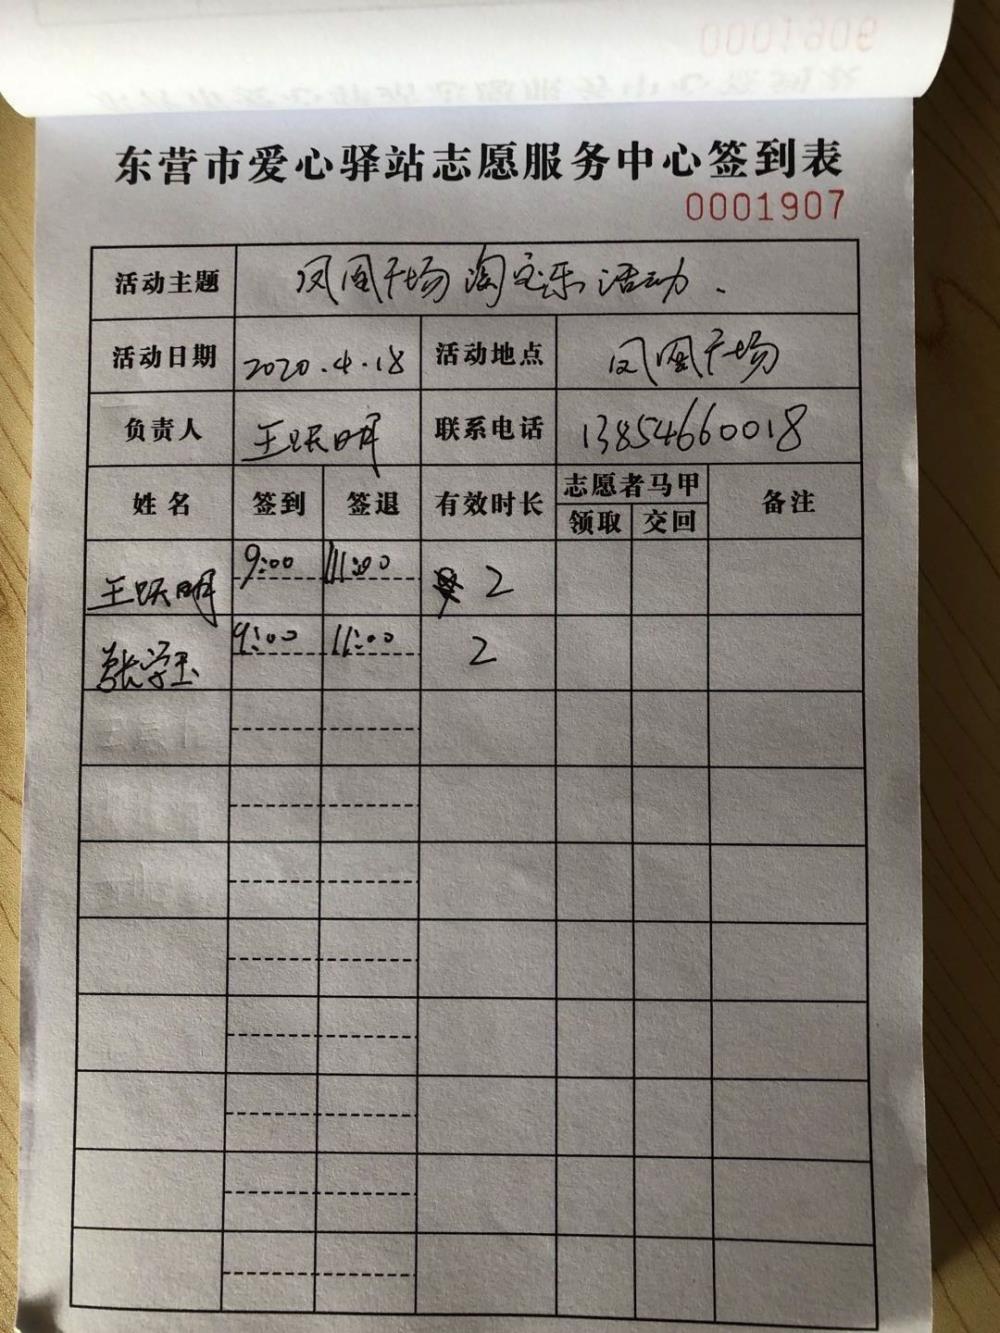 东营市爱心驿站志愿服务中心签到表
0001907
活动主题 凤凰广场淘宝乐活动.
活动日期 2020.4.18 活动地点 凤凰广场
负责人 王跃明 联系电话 13854660018
姓名 签到 签退 有效时长 志愿者马甲 备注
领取 交回
王跃明 9:00 11:00 2
张学玉 9:00 11:00 2